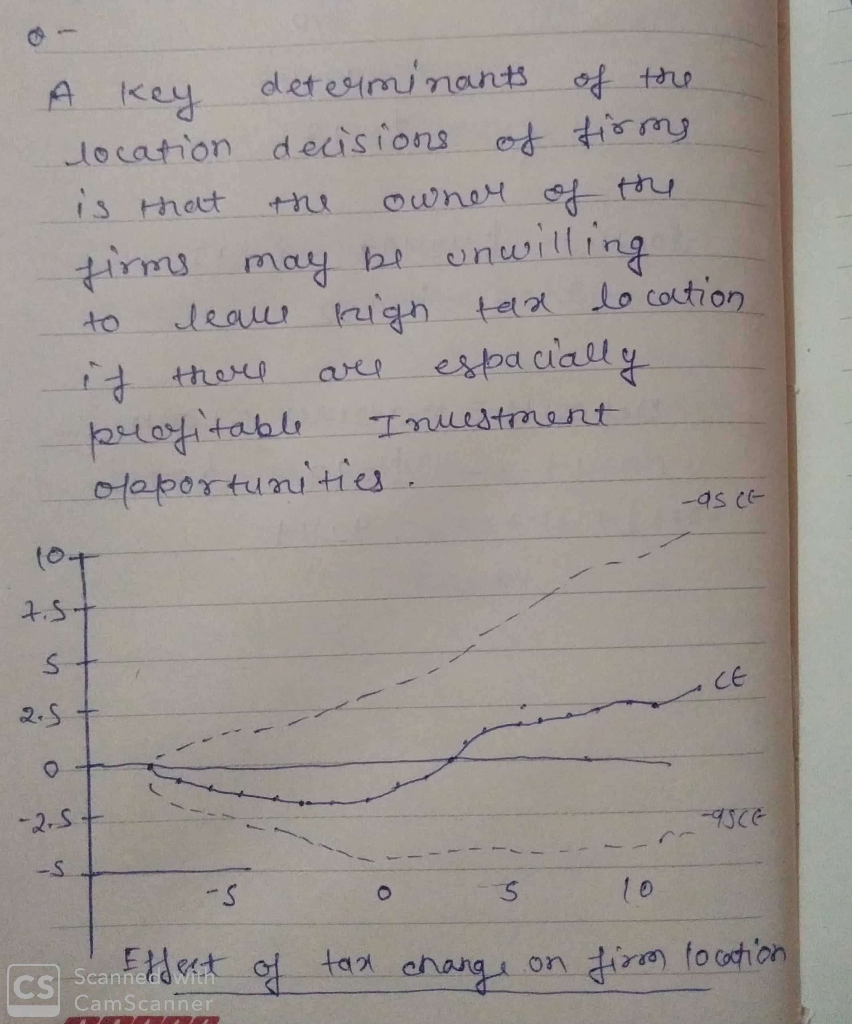 Q -
A key determinants of the
location decisions of firms
is that the owner of the
firms may be unwilling
to leave high tax location
if there are espacially
profitable Investment
opportunities.
-95 CE
10
7.5
5
CE
2.5
0
-2.5
-95CE
-5
-5 0 5 10
Effect of tax change on firm location
CS Scanned with
CamScanner